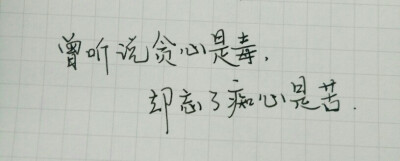 曾听说贪心是毒,
却忘了痴心是苦.